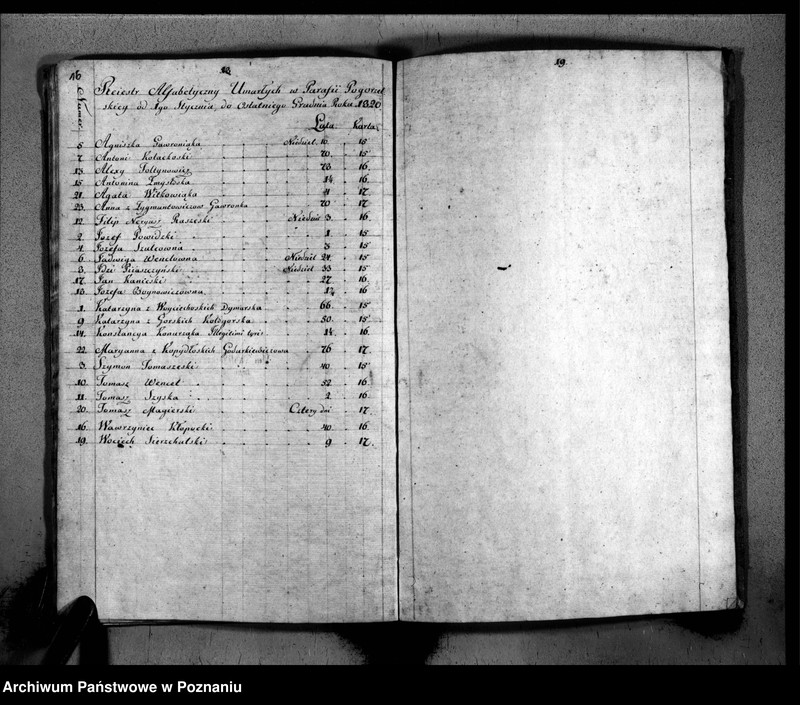 16
18.
19.
Reiestr Alfabetyczny Umarłych w Parafii Pogorzel
skiey od 1go Stycznia do Ostatniego Grudnia Roku 1820
Numer. Lata Karta
5 Agniszka Gawroniąka Niedziel. 10. 15
7 Antoni Kołachoski 70. 15
13 Alexy Foltynowicz 73 16
15 Antonina Zmysłoska 14 16
21. Agata Witkowiąka 4 17
23. Anna z Zygmuntowiczow Gawronka 70 17
12. Filip Neryusz Raszeski Niedziel 3. 16
2. Jozef Powidzki 1 15
4. Jozefa Szulcowna 3 15
6. Jadwiga Wenclowna Niedziel 24. 15
3. Jdzi Piiaszczyński Niedziel 33 15
17. Jan Kanieski 27 16
18. Jozefa Bognowiczowna 16
1. Katarzyna z Woyciechoskich Dymarska 66. 15
9 Katarzyna z Gorskich Kołdgorska 50. 15
14. Konstancya Konarząka Illegitimi toris 14. 16.
22. Maryanna z Kopydłoskich Godurkiewiczowa 76 17.
3. Szymon Tomaszeski 40 15
10. Tomasz Wencel 52 16.
11. Tomasz Szyska 2 16.
20. Tomasz Magierski Cztery dni 17.
16. Wawrzyniec Kłopocki 40 16.
19. Woyciech Sierzchulski 9 17.
Archiwum Państwowe w Poznaniu